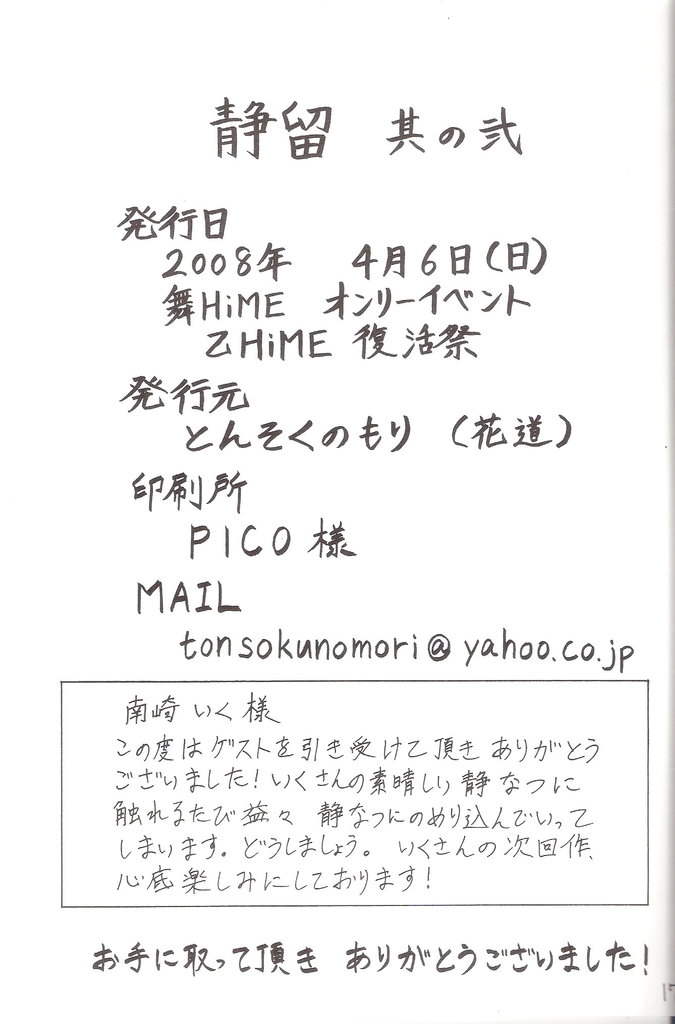 静留 其の弐
発行日
2008年 4月6日(日)
舞HiME オンリーイベント
乙HiME 復活祭
発行元
とんそくのもり (花道)
印刷所
PICO 様
MAIL
tonsokunomori@yahoo.co.jp
南崎 いく 様
この度はゲストを引き受けて頂き ありがとう
ございました!いくさんの素晴しい静なつに
触れるたび益々 静なつにのめり込んでいって
しまいます。どうしましょう。 いくさんの次回作、
心底楽しみにしております!
お手に取って頂き ありがとうございました!
17